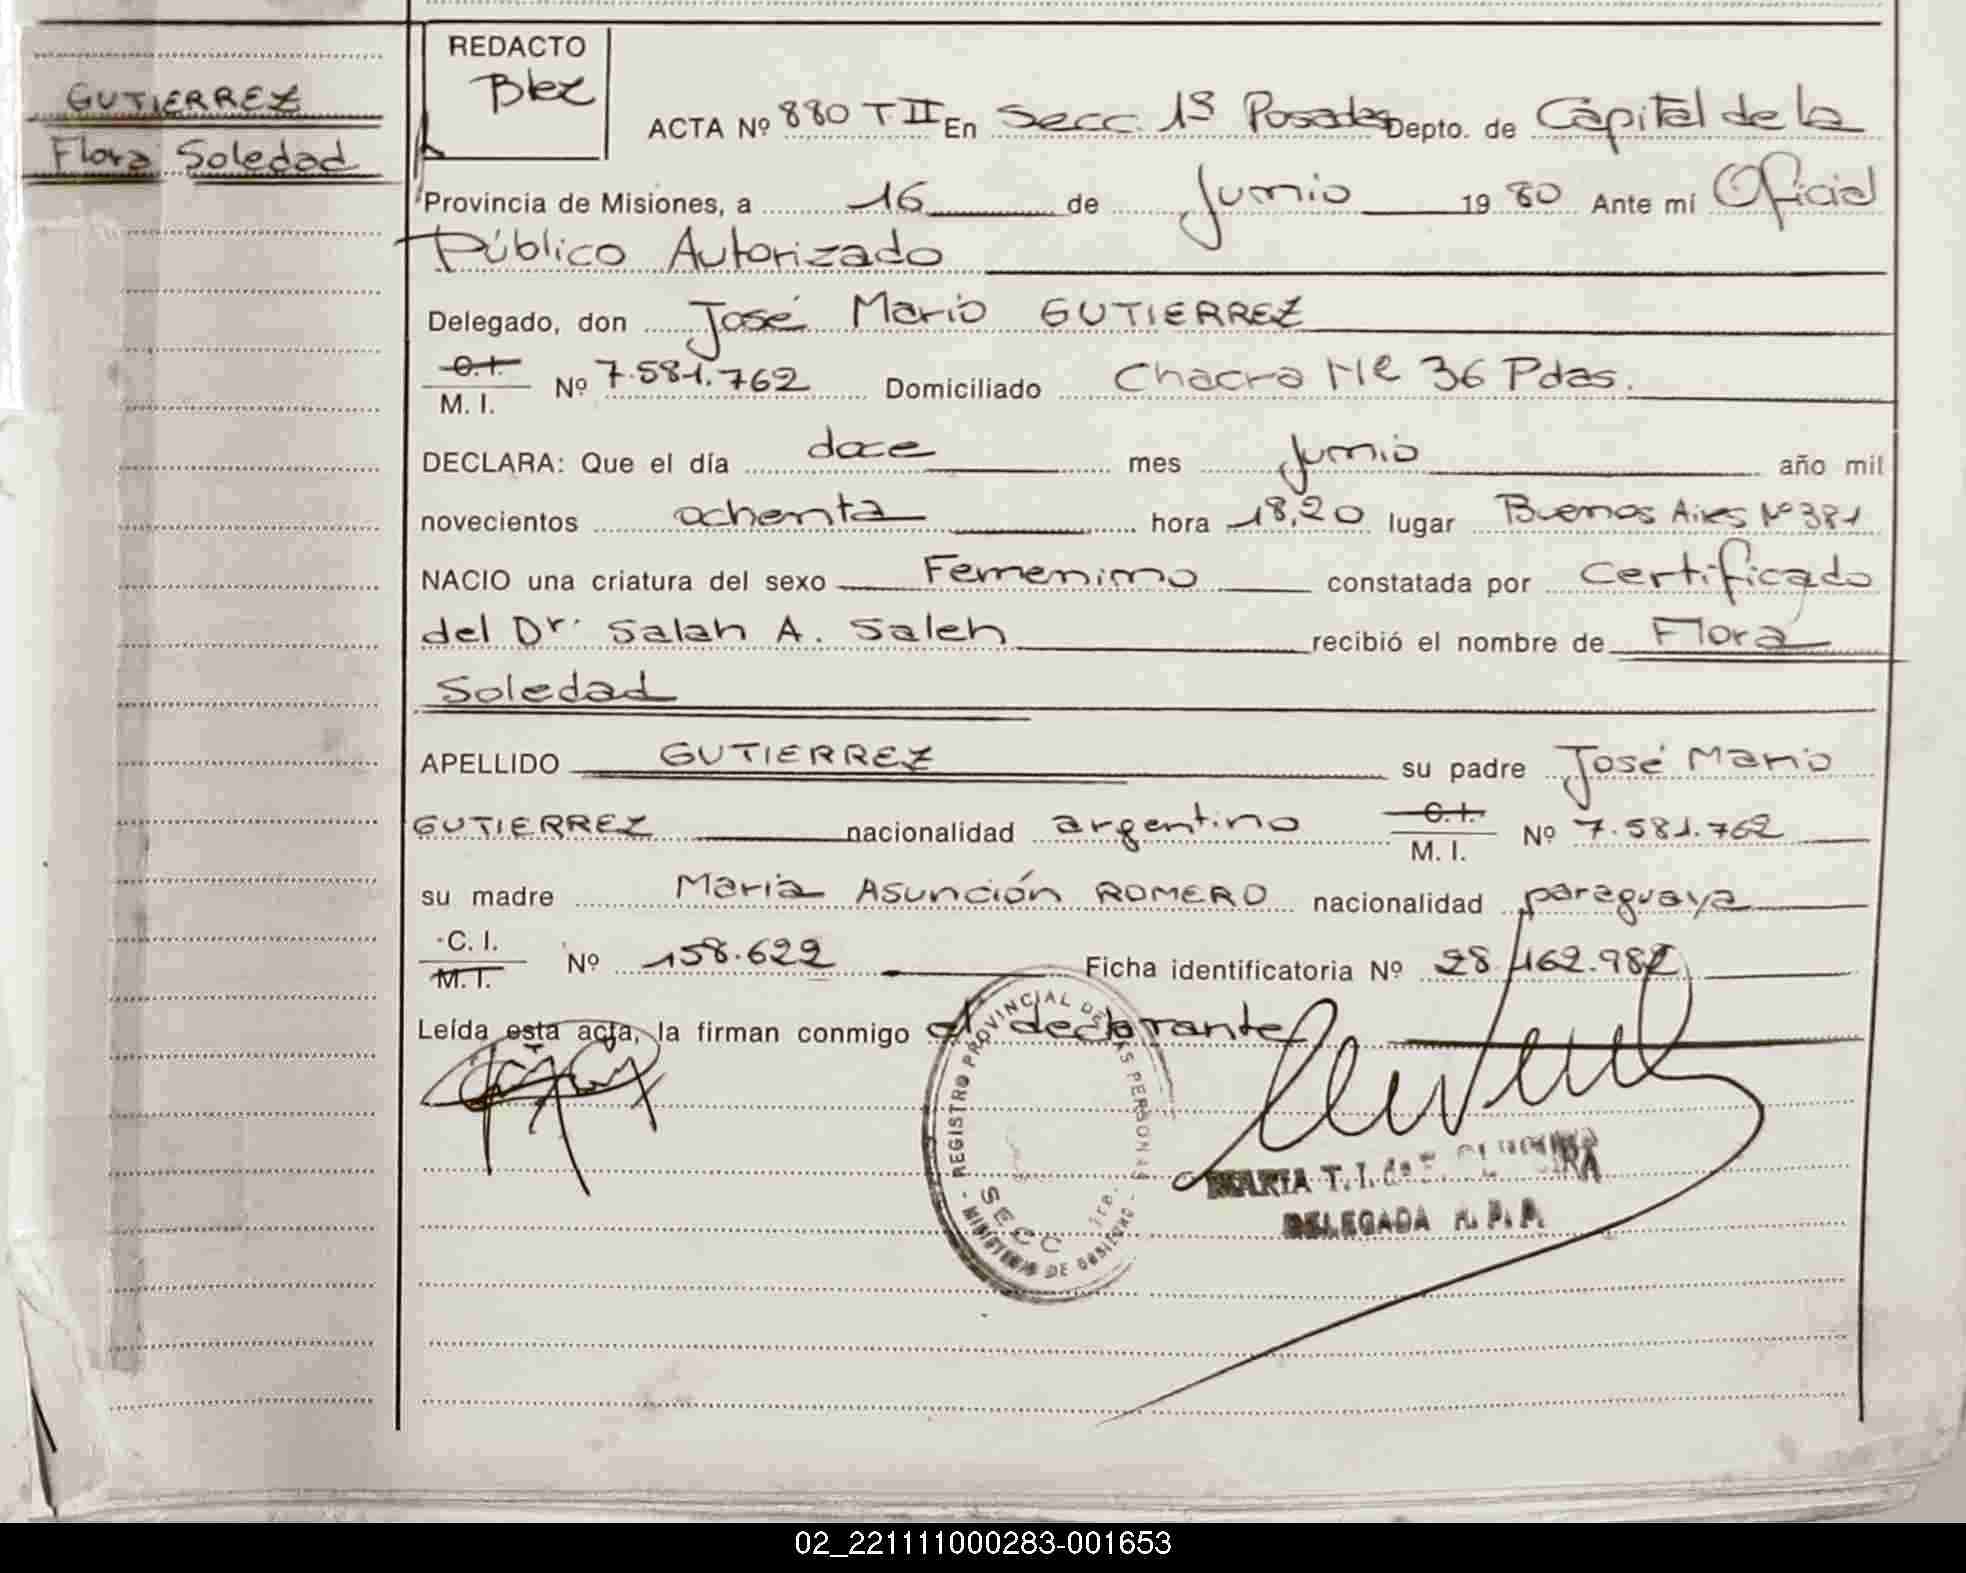 GUTIERREZ
Flora Soledad
REDACTO
Blez
ACTA Nº 880 T II En Secc. 1ª Posadas Depto. de Capital de la
Provincia de Misiones, a 16 de Junio 1980 Ante mí Oficial
Público Autorizado
Delegado, don José Mario GUTIERREZ
C.I.
M. I. Nº 7.581.762 Domiciliado Chacra Nº 36 Pdas.
DECLARA: Que el día doce mes Junio año mil
novecientos ochenta hora 18,20 lugar Buenos Aires Nº 381
NACIO una criatura del sexo Femenino constatada por certificado
del Dr. Salah A. Saleh recibió el nombre de Flora
Soledad
APELLIDO GUTIERREZ su padre José Mario
GUTIERREZ nacionalidad argentino C.I. M. I. Nº 7.581.762
su madre Maria Asunción ROMERO nacionalidad paraguaya
C. I.
M. I. Nº 158.622 Ficha identificatoria Nº 28.162.982
Leída esta acta, la firman conmigo el declarante
REGISTRO PROVINCIAL DE LAS PERSONAS
SECC 1ra.
MINISTERIO DE GOBIERNO
MARIA T. I. de
DELEGADA R. P. P.
02_221111000283-001653